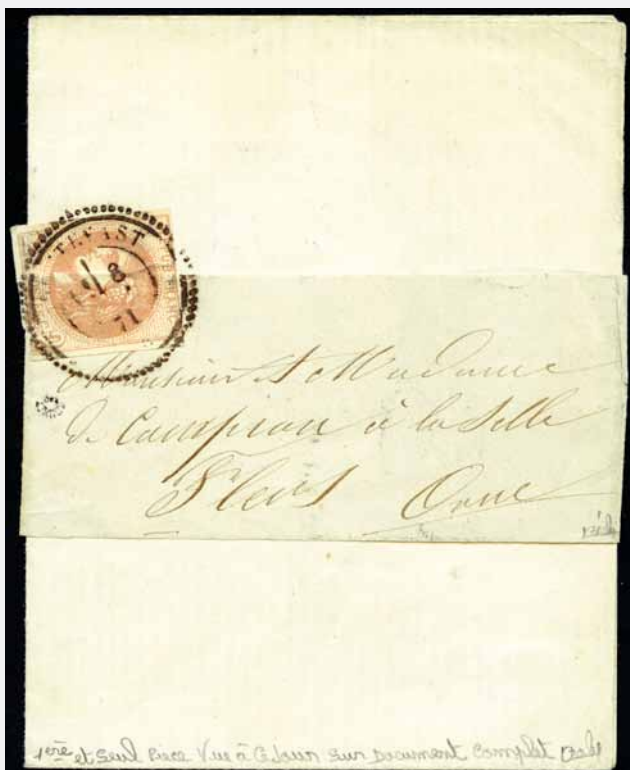 TEFAST
8
71
Monsieur & Madame
de Campion à la Selle
Flers Orne
1ère et Seul Piece Vue à Ce Jour sur Document Complet